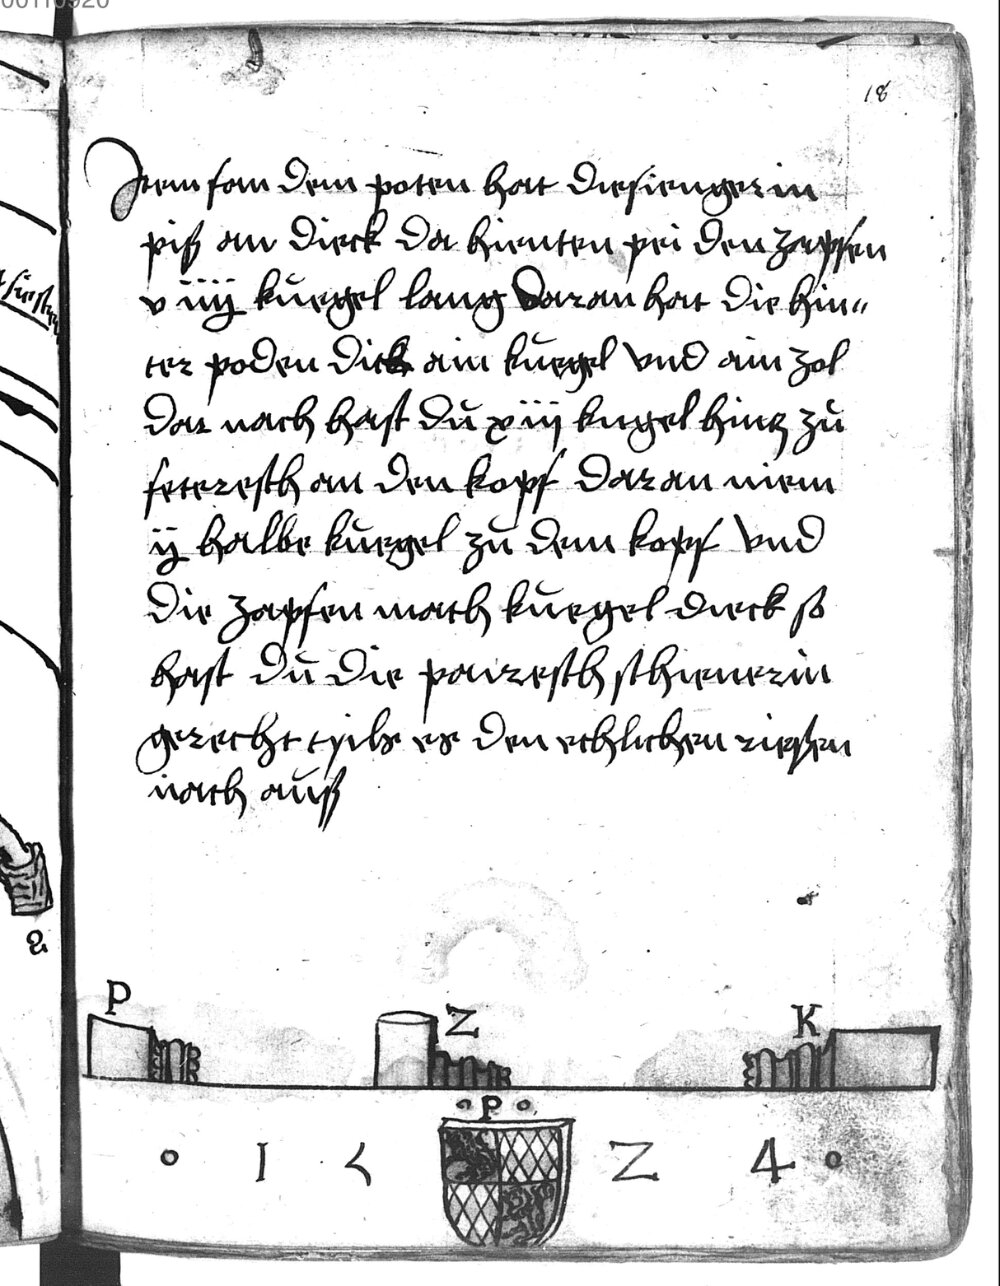 18
Jtem fan dem poten hat die singerin
piß an dieck da hienten pei den zapfen
v iiij kuegel lang daran hat die hin„
ter poden dick ain kuegel vnd ain zol
dar nach hast du xiij kugel hintz zu
feteresth an den kopf daran niem
ij halbe kuegel zu dem kopf vnd
die zapfen mach kuegel dieck so
hast du die pauresth sthienerin
gerecht es den rießen
nach auß
P Z K
P
1 5 2 4